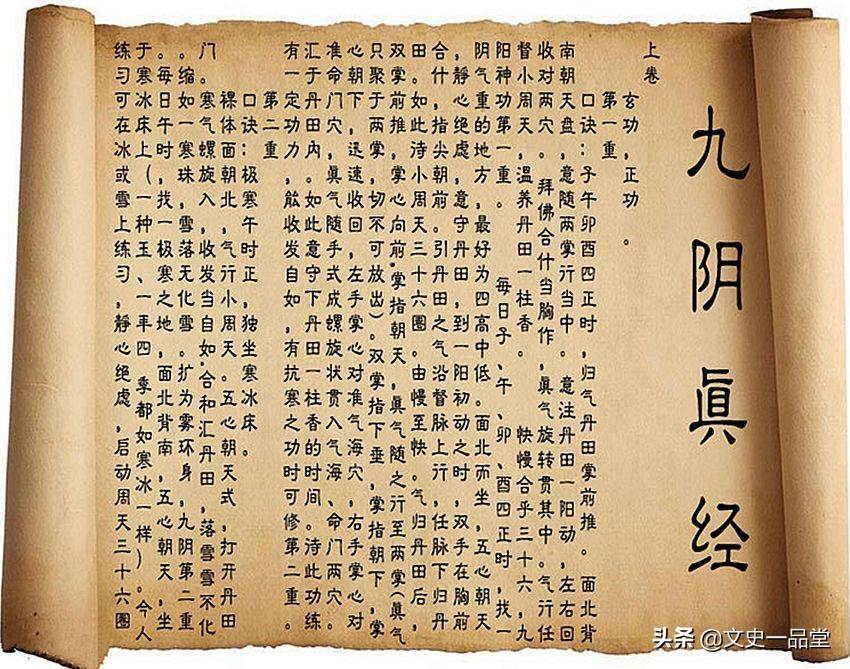 九阴眞经
上卷
玄功，正功。
第一重
口诀：子午卯酉四正时，归气丹田掌前推。面北背
南朝天盘，意随两掌行当中。意注丹田一阳动，左右回
收对两穴。拜佛合什当胸作，眞气旋转贯其中。气行任
督小周天，温养丹田一柱香。快慢合乎三十六，九
阳神功第一重。每日子、午、卯、酉四正时，找一
阴气重的地方，最好为四高中低。面北而坐，五心朝天
，静心绝虑，意守丹田，到一阳初动之时，双手在胸前
合什，指尖朝前。引丹田之气沿督脉上行，任脉下归丹
田。如此待小周天三十六圈。由慢至快。气归丹田后，
双掌前推，掌心向前，掌指朝天，眞气随之行至两掌（眞气
只聚于两掌，切不可放出）。双掌指下垂，掌指朝下，掌
心朝下，迅速收回，左手掌心对准气海穴，右手掌心对
准命门穴，眞气随手式成螺旋状贯入气海、命门两穴。
汇于丹田内。如此意守下丹田一柱香的时间。待此功练
有一定功力，能收发自如，有抗寒之功时可修第二重。
第二重
口诀：极寒午时正，独坐寒冰床。
裸体面朝北，气行小周天。五心朝天式，打开丹田
门。寒气螺旋入，收发当自如。合和汇丹田，落雪雪不化
。缩如一寒珠，雪落无化雪。扩为雾环身，九阴第二重
。每日午时，找一极寒之地，面北背南，五心朝天，坐
于寒冰床上（一种玉、一年四季都如寒冰一样）。今人
练习可在冰或雪上练习，静心绝虑，启动周天三十六圈
头条 @文史一品堂